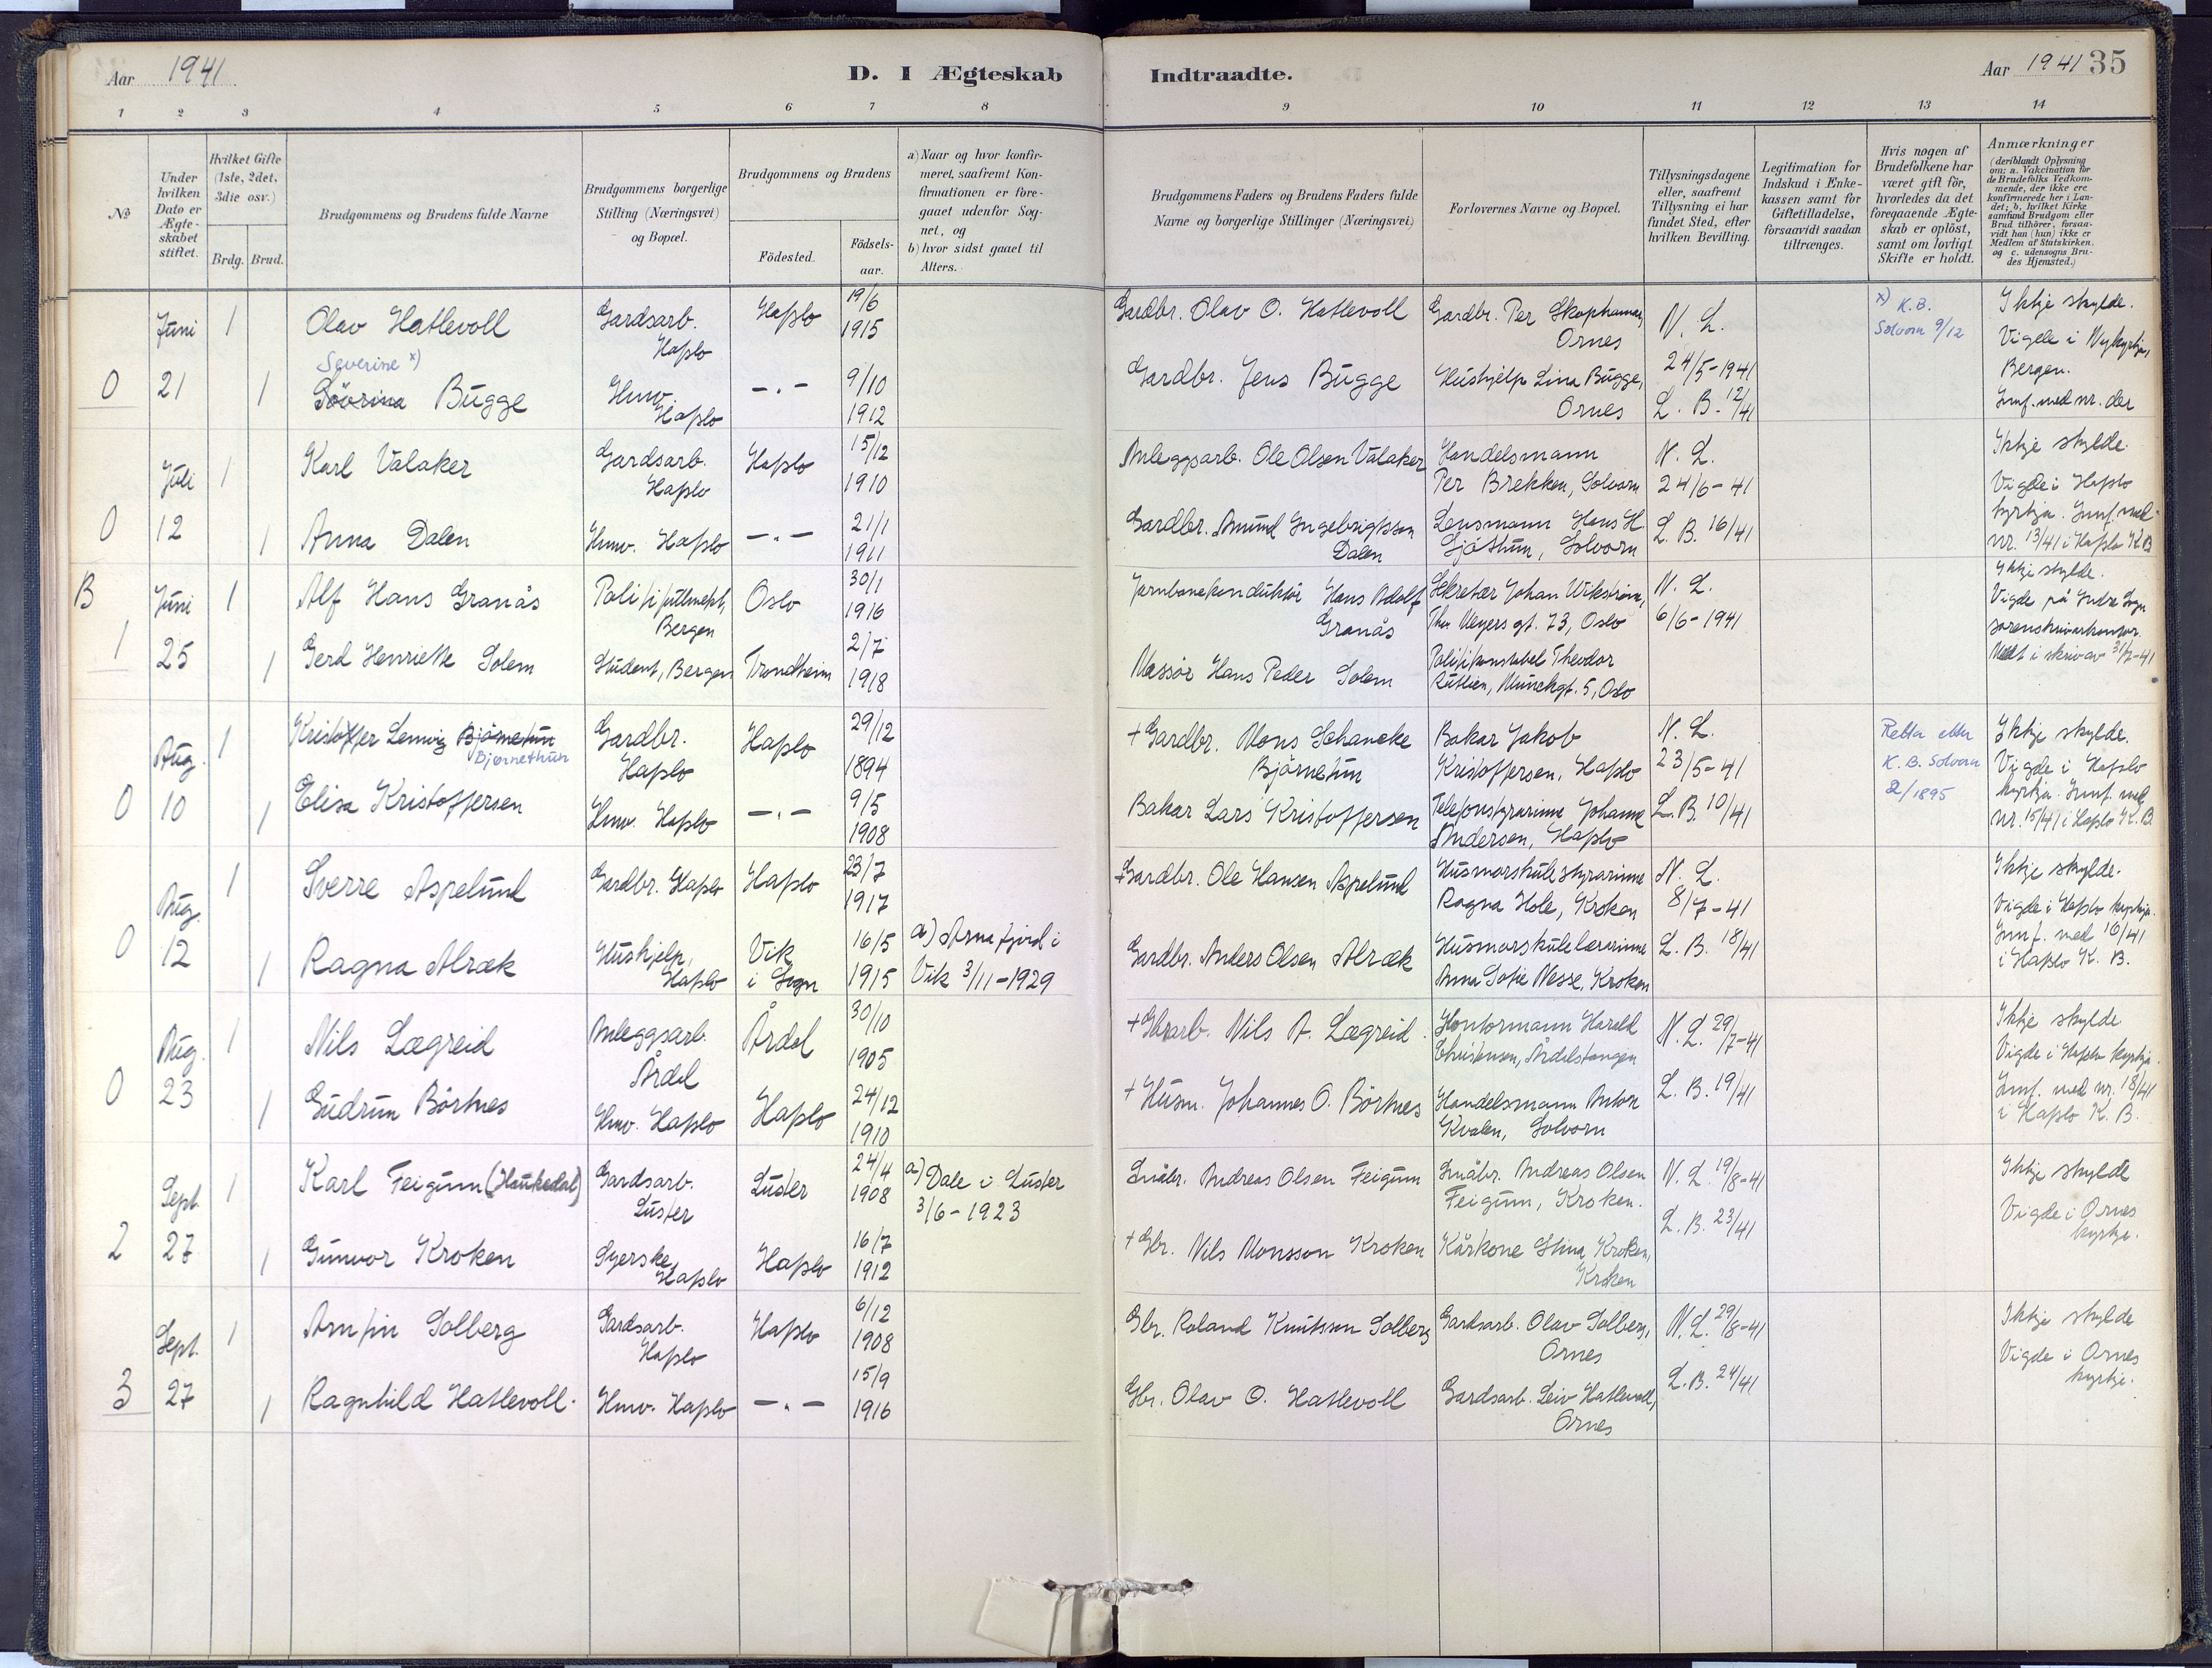 Aar 1941
D. I Ægteskab Indtraadte.
Aar 1941 35
1 2 3 4 5 6 7 8 9 10 11 12 13 14
No
Under hvilken Dato er Ægteskabet stiftet.
Hvilket Gifte (1ste, 2det, 3die osv.)
Brdg. Brud.
Brudgommens og Brudens fulde Navne
Brudgommens borgerlige Stilling (Næringsvei) og Bopæl.
Brudgommens og Brudens
Födested.
Födselsaar.
a) Naar og hvor konfirmeret, saafremt Konfirmationen er foregaaet udenfor Sognet, og
b) hvor sidst gaaet til Alters.
Brudgommens Faders og Brudens Faders fulde Navne og borgerlige Stillinger (Næringsvei)
Forlovernes Navne og Bopæl.
Tillysningsdagene eller, saafremt Tillysning ei har fundet Sted, efter hvilken Bevilling.
Legitimation for Indskud i Enkekassen samt for Giftetilladelse, forsaavidt saadan tiltrænges.
Hvis nogen af Brudefolkene har været gift för, hvorledes da det foregaaende Ægteskab er oplöst, samt om lovligt Skifte er holdt.
Anmærkninger (deriblandt Oplysning om: a. Vakcination for de Brudefolks Vedkommende, der ikke ere konfirmerede her i Landet; b. hvilket Kirkesamfund Brudgom eller Brud tilhörer, forsaavidt han (hun) ikke er Medlem af Statskirken. og c. udensogns Brudes Hjemsted.)
Juni 1 Olav Hatlevoll Gardsarb. Haflo Haflo 19/6 1915
Gardbr. Olav O. Hatlevoll Gardbr. Per Skaphamar, Ornes N. L. 24/5-1941
x) K.B. Solvorn 9/12
Severine x)
0 21 1 Sövrina Bugge Hmv. Haflo -"- 9/10 1912
Gardbr. Jens Bugge Hushjelp Lina Bugge, Ornes L. B. 12/41
Ikkje skylde. Vigde i Nykyrkja, Bergen. Innf. med nr. der
Juli 1 Karl Valaker Gardsarb. Haflo Haflo 15/12 1910
Anleggsarb. Ole Olsen Valaker Handelsmann Per Brekken, Solvorn N. L. 24/6-41
0 12 1 Anna Dalen Hmv. Haflo -"- 21/1 1911
Gardbr. Amund Ingebrigtsson Dalen Lensmann Hans H. Sjöthun, Solvorn L. B. 16/41
Ikkje skylde Vigde i Haflo kyrkja. Innf. med nr. 13/41 i Haflo K.B
B Juni 1 Alf Hans Granås Bergen Oslo 30/1 1916
Jarnbanekonduktör Hans Adolf Granås Sekretær Johan Wikström, Oslo N. L. 6/6-1941
1 25 1 Gerd Henriette Solem Student, Bergen Trondheim 2/7 1918
Massör Hans Peder Solem Politikonstabel Theodor Munchgt. 5, Oslo
Ikkje skylde. Vigde på Indre Sogn sorenskrivarkontor. i skriv av 31/7-41
Aug. 1 Kristoffer Lemvig Bjørnetun Gardbr. Haflo Haflo 29/12 1894
Bjørnethun
+ Gardbr. Mons Schancke Bjørnetun Bakar Jakob Kristoffersen, Haflo N. L. 23/5-41
Retta etter K.B. Solvorn 2/1895
0 10 1 Elisa Kristoffersen Hmv. Haflo -"- 9/5 1908
Bakar Lars Kristoffersen Telefonstyrarinne Johanne Andersen, Haflo L. B. 10/41
Ikkje skylde. Vigde i Haflo kyrkja. Innf. med nr. 15/41 i Haflo K. B.
Aug. 1 Sverre Aspelund Gardbr. Haflo Haflo 23/7 1917
+ Gardbr. Ole Hansen Aspelund Husmorskulestyrarinne Ragna Hole, Kroken N. L. 8/7-41
0 12 1 Ragna Alræk Hushjelp, Haflo Vik i Sogn 16/5 1915 a) Arnafjord i Vik 3/11-1929
Gardbr. Anders Olsen Alræk Husmorskulelærarinne Anna Sofie Nesse, Kroken L. B. 18/41
Ikkje skylde. Vigde i Haflo kyrkja. Innf. med 16/41 i Haflo K. B.
Aug. 1 Nils Lægreid Anleggsarb. Årdal Årdal 30/10 1905
Nils A. Lægreid Kontormann Harald Christensen, Årdalstangen N. L. 29/7-41
0 23 1 Gudrun Börtnes Hmv. Haflo Haflo 24/12 1910
+ Husm. Johannes O. Börtnes Handelsmann Anton Kvalen, Solvorn L. B. 19/41
Ikkje skylde Vigde i Haflo kyrkja. Innf. med nr. 18/41 i Haflo K. B.
Sept. 1 Karl Feigum (Haukedal) Gardsarb. Luster Luster 24/4 1908 a) Dale i Luster 3/6-1923
Småbr. Andreas Olsen Feigum Småbr. Andreas Olsen Feigum, Kroken. N. L. 19/8-41
2 27 1 Gunvor Kroken Syerske, Haflo Haflo 16/7 1912
+ Gbr. Nils Monsson Kroken Kårkone Stina Kroken, Kroken L. B. 23/41
Ikkje skylde Vigde i Ornes kyrkje.
Sept. 1 Arnfin Solberg Gardsarb. Haflo Haflo 6/12 1908
Gbr. Roland Knutsson Solberg Gardsarb. Olav Solberg, Ornes N. L. 29/8-41
3 27 1 Ragnhild Hatlevoll. Hmv. Haflo -"- 15/9 1916
Gbr. Olav O. Hatlevoll Gardsarb. Leiv Hatlevoll, Ornes L. B. 24/41
Ikkje skylde Vigde i Ornes kyrkje.